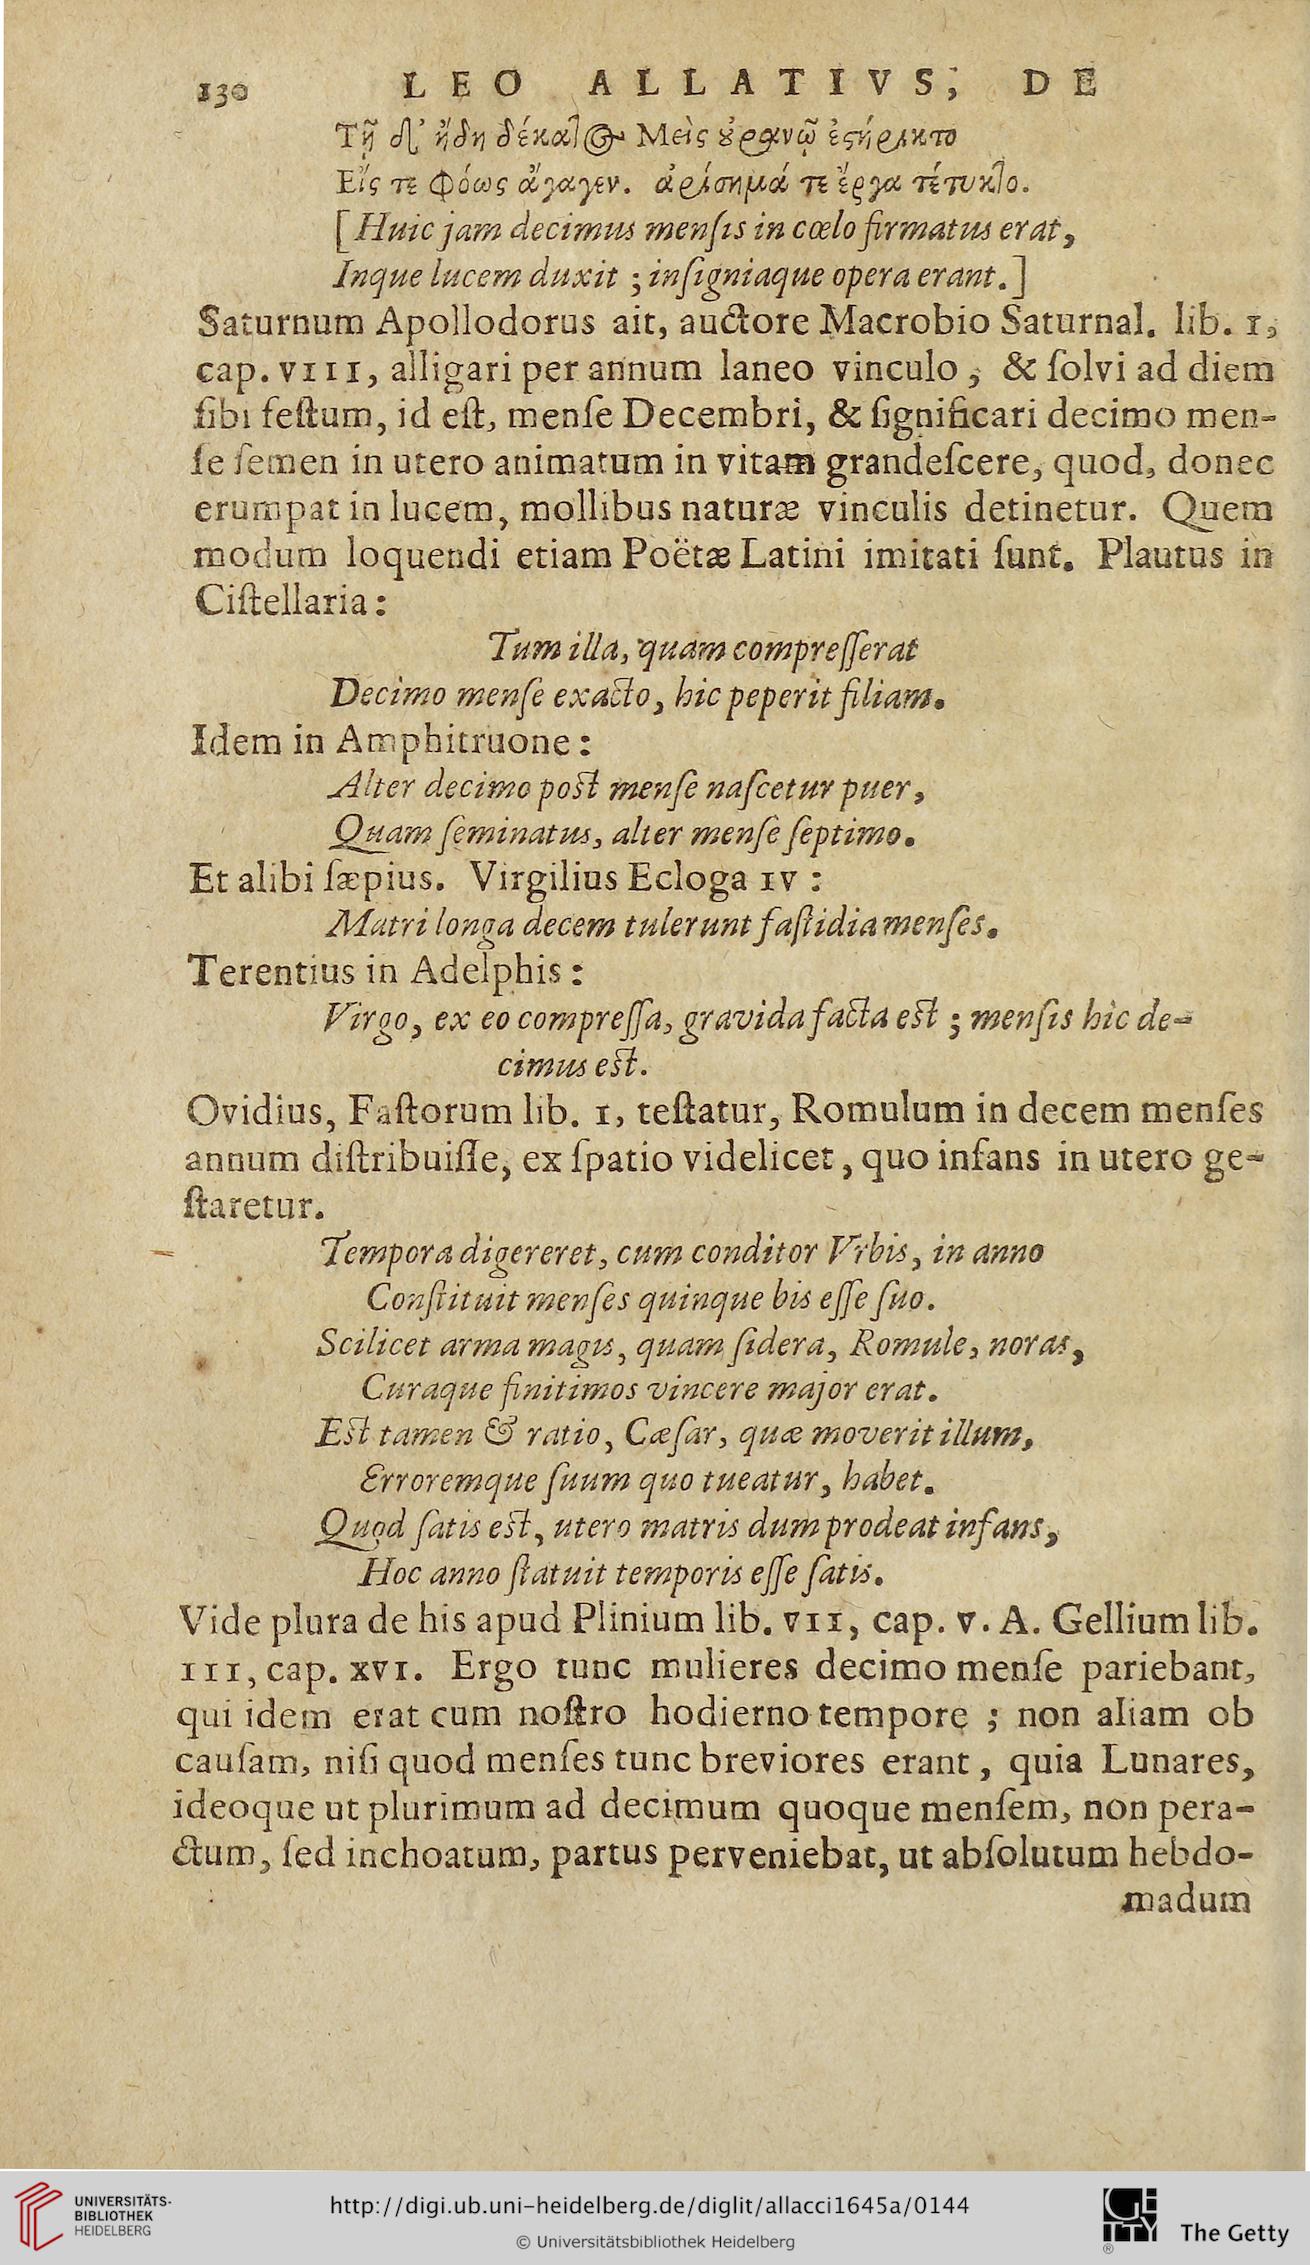 130 LEO ALLATIVS, DE
Τῇ δ' ἤδη δέκατος Μεὶς οὐρανῷ ἐστήρικτο
Εἴς τε Φόως ἄγαγεν. ἀρίσημά τε ἔργα τέτυκτο.
[Huic jam decimus menſis in cœlo firmatus erat,
Inque lucem duxit ; inſigniaque opera erant.]
Saturnum Apollodorus ait, auctore Macrobio Saturnal. lib. I,
cap. VIII, alligari per annum laneo vinculo, & ſolvi ad diem
ſibi feſtum, id eſt, menſe Decembri, & ſignificari decimo men-
ſe ſemen in utero animatum in vitam grandeſcere, quod, donec
erumpat in lucem, mollibus naturæ vinculis detinetur. Quem
modum loquendi etiam Poëtæ Latini imitati ſunt. Plautus in
Ciſtellaria:
Tum illa, quam compreſſerat
Decimo menſe exacto, hic peperit filiam.
Idem in Amphitruone:
Alter decimo poſt menſe naſcetur puer,
Quam ſeminatus, alter menſe ſeptimo.
Et alibi ſæpius. Virgilius Ecloga IV :
Matri longa decem tulerunt faſtidia menſes.
Terentius in Adelphis:
Virgo, ex eo compreſſa, gravida facta eſt ; menſis hic de-
cimus eſt.
Ovidius, Faſtorum lib. I, teſtatur, Romulum in decem menſes
annum diſtribuiſſe, ex ſpatio videlicet, quo infans in utero ge-
ſtaretur.
Tempora digereret, cum conditor Vrbis, in anno
Conſtituit menſes quinque bis eſſe ſuo.
Scilicet arma magis, quam ſidera, Romule, noras,
Curaque finitimos vincere major erat.
Eſt tamen & ratio, Cæſar, quæ moverit illum,
Erroremque ſuum quo tueatur, habet.
Quod ſatis eſt, utero matris dum prodeat infans,
Hoc anno ſtatuit temporis eſſe ſatis.
Vide plura de his apud Plinium lib. VII, cap. V. A. Gellium lib.
III, cap. XVI. Ergo tunc mulieres decimo menſe pariebant,
qui idem erat cum noſtro hodierno tempore ; non aliam ob
cauſam, niſi quod menſes tunc breviores erant, quia Lunares,
ideoque ut plurimum ad decimum quoque menſem, non pera-
ctum, ſed inchoatum, partus perveniebat, ut abſolutum hebdo-
madum
UNIVERSITÄTS-
BIBLIOTHEK
HEIDELBERG
http://digi.ub.uni-heidelberg.de/diglit/allacci1645a/0144
© Universitätsbibliothek Heidelberg
Getty
The Getty